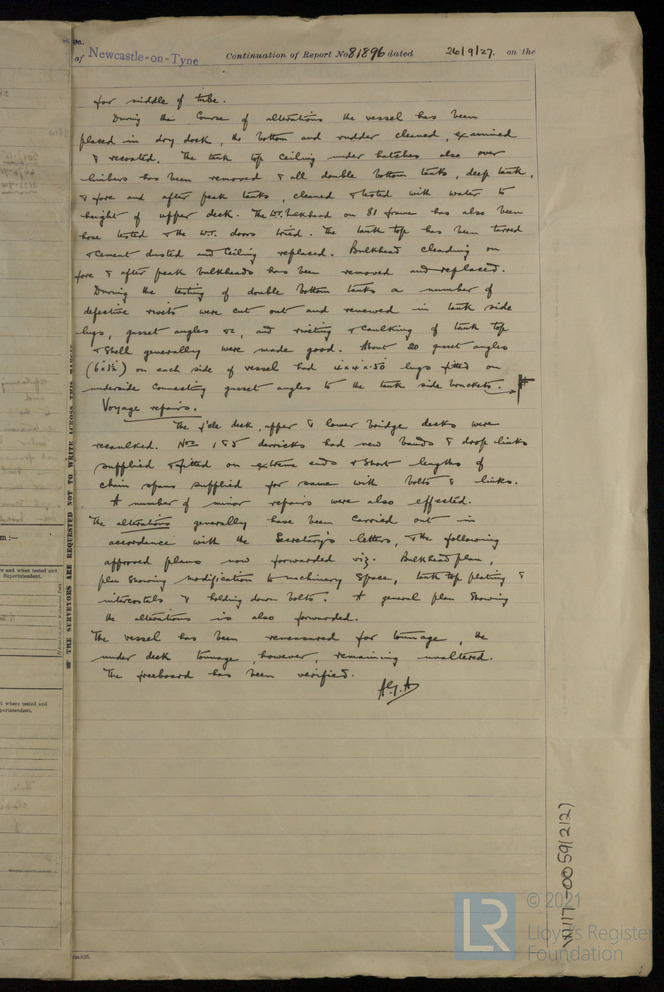 of Newcastle-on-Tyne Continuation of Report No 81896 dated 26/9/27. on the
for middle of tube.
During the course of alterations the vessel has been
placed in dry dock, the bottom and rudder cleaned, examined
& recoated. The tank top ceiling under hatches also over
limbers has been removed & all double bottom tanks, deep tank,
& fore and after peak tanks, cleaned & tested with water to
height of upper deck. The W.T. bulkhead on 81 frame has also been
hose tested & the W.T. doors tried. The tank top has been tarred
& cement dusted and ceiling replaced. Bulkhead cleading on
fore & after peak bulkheads has been removed and replaced.
During the testing of double bottom tanks a number of
defective rivets were cut out and renewed in tank side
lugs, gusset angles &c, and riveting & caulking of tank top
& shell generally were made good. About 20 gusset angles
on each side of vessel had 4 x 4 x .50 lugs fitted on
underside connecting gusset angles to the tank side brackets.
Voyage repairs.
The f'cle deck, upper & lower bridge decks were
recaulked. Nos 1 & 5 derricks had new bands & drop links
supplied & fitted on extreme ends & short lengths of
chain spans supplied for same with bolts & links.
A number of minor repairs were also effected.
The alterations generally have been carried out in
accordance with the Secretary's letters, & the following
approved plans now forwarded viz. Bulkhead plan,
plan showing modification to machinery space, tank top plating &
intercostals & holding down bolts. A general plan showing
the alterations is also forwarded.
The vessel has been remeasured for tonnage, the
under deck tonnage, however, remaining unaltered.
The freeboard has been verified.
THE SURVEYORS ARE REQUESTED NOT TO WRITE ACROSS THIS MARGIN
W117-0059(2/2)
LR
© 2021
Lloyd's Register
Foundation